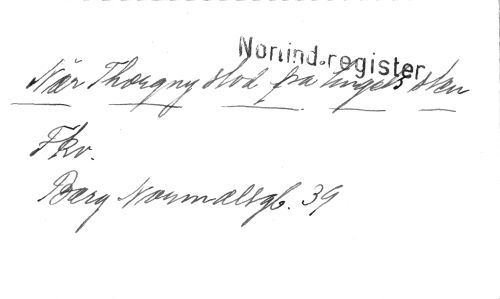 Nortind.register
Når Thorgny stod fra Engels sken
Fkv.
Berg Normalsgb. 39